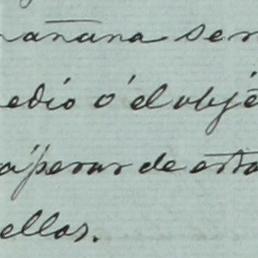 mañana ser
medio ó el obje
á pesar de esta
ellos.